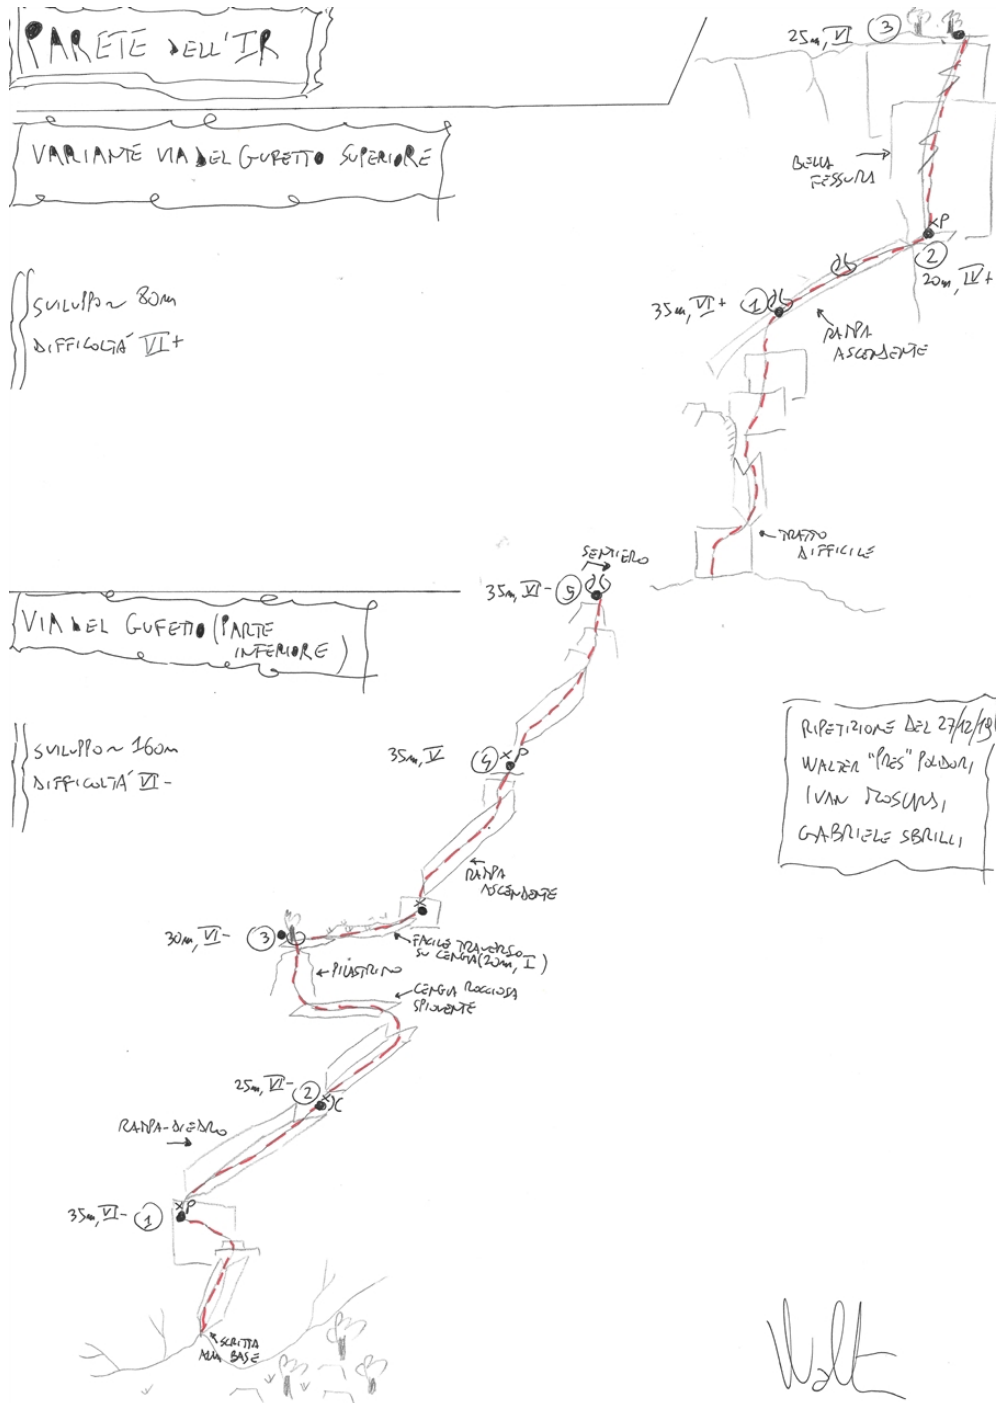 PARETE DELL'IR
VARIANTE VIA DEL GUFETTO SUPERIORE
SVILUPPO ~ 80m
DIFFICOLTÀ VI+
25m, VI 3
BELLA
FESSURA
P
2
20m, IV+
35m, VI+ 1
RAMPA
ASCENDENTE
TRATTO
DIFFICILE
SENTIERO
35m, VI- 5
VIA DEL GUFETTO (PARTE
INFERIORE)
SVILUPPO ~ 160m
DIFFICOLTÀ VI-
RIPETIZIONE DEL 27/12/19
WALTER "PRES" POLIDORI
IVAN
GABRIELE SBRILLI
35m, V 4 P
RAMPA
ASCENDENTE
30m, VI- 3
FACILE TRAVERSO
SU CENGIA (20m, I)
PILASTRINO
CENGIA ROCCIOSA
SPIOVENTE
25m, VI- 2
C
RAMPA-DIEDRO
35m, VI- 1 P
SCRITTA
ALLA BASE
Walt